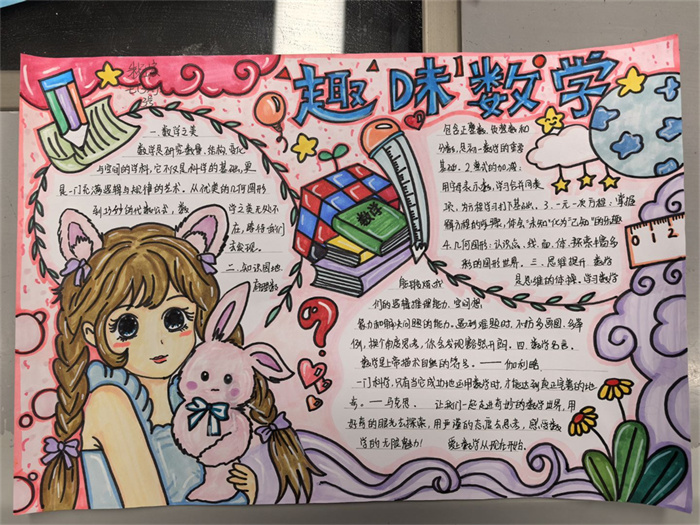 趣味数学
一.数学之美
数学是研究数量、结构、变化
与空间的学科,它不仅是科学的基础,更
是一门充满逻辑与规律的艺术。从优美的几何图形
到巧妙的代数公式,数
学之美无处不
在,等待我们
去发现。
二.知识园地
有理数:
包含正整数、负整数和
分数,是初一数学的重要
基础。2.整式的加减:
用字母表示数,学习合并同类
项,为方程学习打下基础。3.一元一次方程:掌握
解方程的步骤,体会“未知”化为“已知”的乐趣
4.几何图形:认识点、线、面、体,探索丰富多
彩的图形世界。三.思维提升 数学
是思维的体操,学习数学
能锻炼我
们的逻辑推理能力、空间想
象力和解决问题的能力。遇到难题时,不妨多画图、多举
例,换个角度思考,你会发现豁然开朗。四.数学名言
数学是上帝描术自然的符号。——伽利略
一门科学,只有当它成功地运用数学时,才能达到真正完善的地
步。——马克思 让我们一起走进奇妙的数学世界,用
好奇的眼光去探索,用严谨的态度去思考,感受数
学的无限魅力! 爱上数学从现在开始。
数学
0 1 2